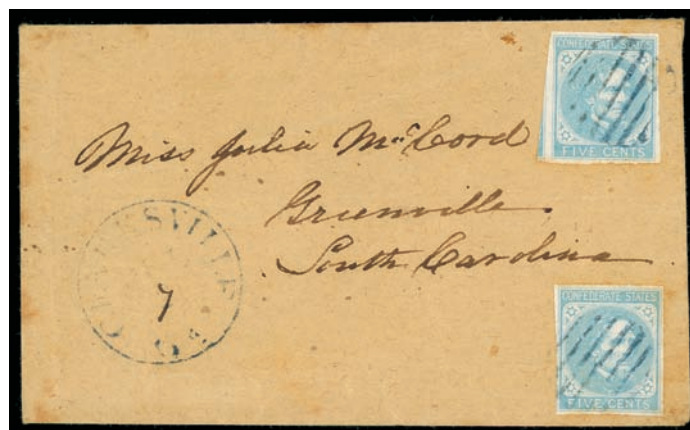 CONFEDERATE STATES
FIVE CENTS
Miss Julia McCord
Greenville
South Carolina
CLARKESVILLE
7
Ga
CONFEDERATE STATES
FIVE CENTS